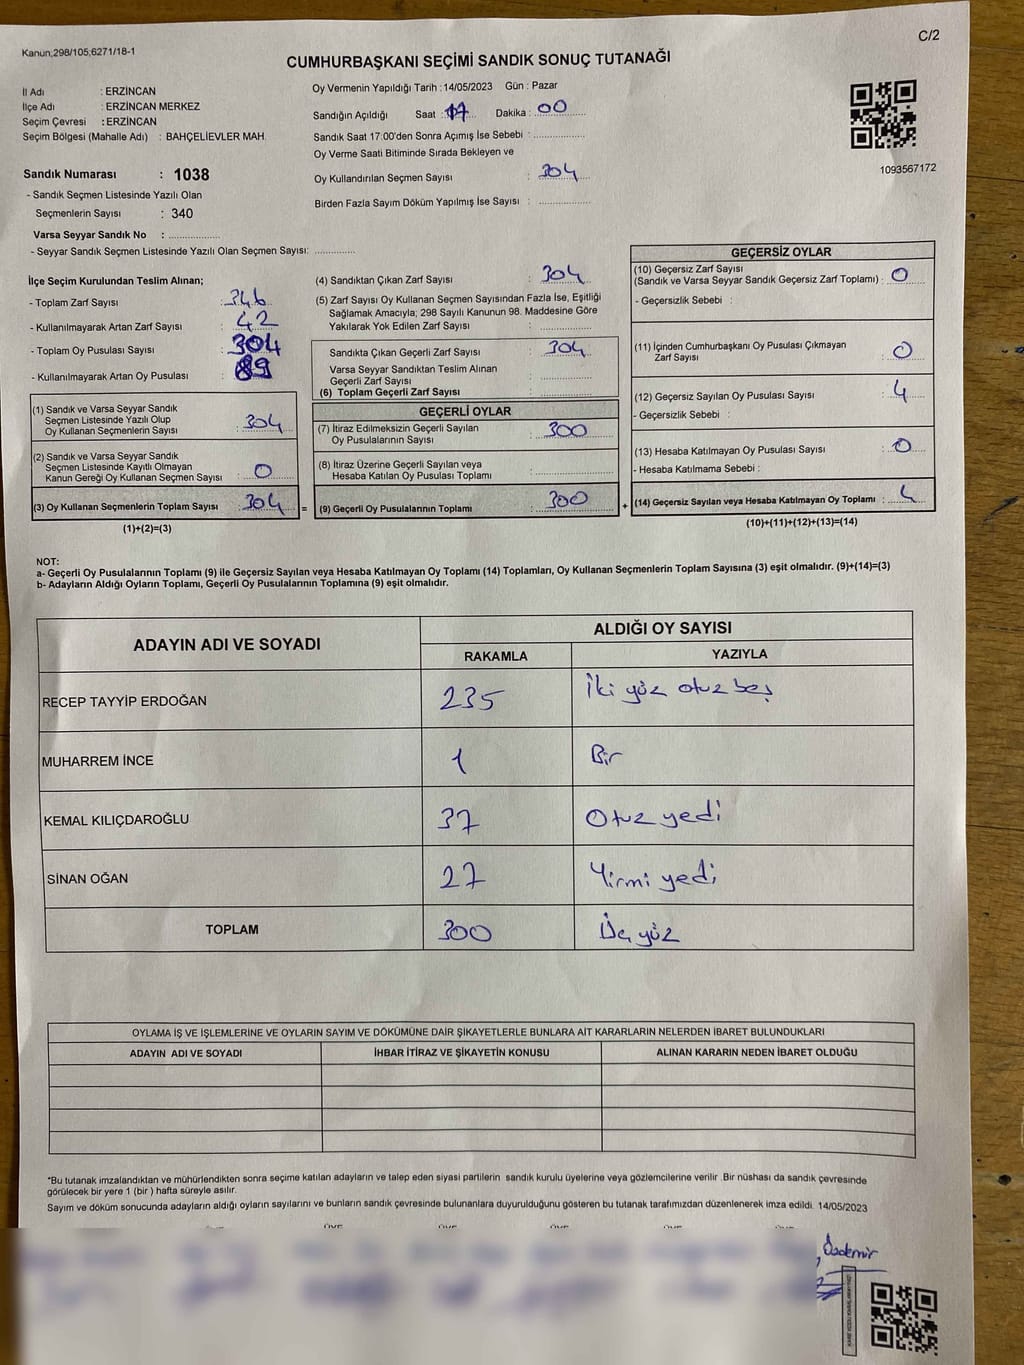 C/2
Kanun,298/105,6271/18-1
CUMHURBAŞKANI SEÇİMİ SANDIK SONUÇ TUTANAĞI
İl Adı : ERZİNCAN
İlçe Adı : ERZİNCAN MERKEZ
Seçim Çevresi : ERZİNCAN
Seçim Bölgesi (Mahalle Adı) : BAHÇELİEVLER MAH.
Sandık Numarası : 1038
- Sandık Seçmen Listesinde Yazılı Olan
Seçmenlerin Sayısı : 340
Varsa Seyyar Sandık No :
- Seyyar Sandık Seçmen Listesinde Yazılı Olan Seçmen Sayısı:
Oy Vermenin Yapıldığı Tarih : 14/05/2023 Gün : Pazar
Sandığın Açıldığı Saat : 17 Dakika : 00
Sandık Saat 17:00'den Sonra Açımış İse Sebebi :
Oy Verme Saati Bitiminde Sırada Bekleyen ve
Oy Kullandırılan Seçmen Sayısı : 304
Birden Fazla Sayım Döküm Yapılmış İse Sayısı :
1093567172
İlçe Seçim Kurulundan Teslim Alınan;
- Toplam Zarf Sayısı : 346
- Kullanılmayarak Artan Zarf Sayısı : 42
- Toplam Oy Pusulası Sayısı : 304
- Kullanılmayarak Artan Oy Pusulası : 89
(1) Sandık ve Varsa Seyyar Sandık
Seçmen Listesinde Yazılı Olup
Oy Kullanan Seçmenlerin Sayısı : 304
(2) Sandık ve Varsa Seyyar Sandık
Seçmen Listesinde Kayıtlı Olmayan
Kanun Gereği Oy Kullanan Seçmen Sayısı : 0
(3) Oy Kullanan Seçmenlerin Toplam Sayısı : 304 =
(1)+(2)=(3)
(4) Sandıktan Çıkan Zarf Sayısı : 304
(5) Zarf Sayısı Oy Kullanan Seçmen Sayısından Fazla İse, Eşitliği
Sağlamak Amacıyla; 298 Sayılı Kanunun 98. Maddesine Göre
Yakılarak Yok Edilen Zarf Sayısı :
Sandıkta Çıkan Geçerli Zarf Sayısı : 304
Varsa Seyyar Sandıktan Teslim Alınan
Geçerli Zarf Sayısı :
(6) Toplam Geçerli Zarf Sayısı :
GEÇERLİ OYLAR
(7) İtiraz Edilmeksizin Geçerli Sayılan
Oy Pusulalarının Sayısı : 300
(8) İtiraz Üzerine Geçerli Sayılan veya
Hesaba Katılan Oy Pusulası Toplamı :
(9) Geçerli Oy Pusulalarının Toplamı : 300 +
GEÇERSİZ OYLAR
(10) Geçersiz Zarf Sayısı
(Sandık ve Varsa Seyyar Sandık Geçersiz Zarf Toplamı) : 0
- Geçersizlik Sebebi :
(11) İçinden Cumhurbaşkanı Oy Pusulası Çıkmayan
Zarf Sayısı : 0
(12) Geçersiz Sayılan Oy Pusulası Sayısı : 4
- Geçersizlik Sebebi :
(13) Hesaba Katılmayan Oy Pusulası Sayısı : 0
- Hesaba Katılmama Sebebi :
(14) Geçersiz Sayılan veya Hesaba Katılmayan Oy Toplamı : 4
(10)+(11)+(12)+(13)=(14)
NOT:
a- Geçerli Oy Pusulalarının Toplamı (9) ile Geçersiz Sayılan veya Hesaba Katılmayan Oy Toplamı (14) Toplamları, Oy Kullanan Seçmenlerin Toplam Sayısına (3) eşit olmalıdır. (9)+(14)=(3)
b- Adayların Aldığı Oyların Toplamı, Geçerli Oy Pusulalarının Toplamına (9) eşit olmalıdır.
ADAYIN ADI VE SOYADI
ALDIĞI OY SAYISI
RAKAMLA YAZIYLA
RECEP TAYYİP ERDOĞAN 235 İki yüz otuz beş
MUHARREM İNCE 1 Bir
KEMAL KILIÇDAROĞLU 37 Otuz yedi
SİNAN OĞAN 27 Yirmi yedi
TOPLAM 300 Üç yüz
OYLAMA İŞ VE İŞLEMLERİNE VE OYLARIN SAYIM VE DÖKÜMÜNE DAİR ŞİKAYETLERLE BUNLARA AİT KARARLARIN NELERDEN İBARET BULUNDUKLARI
ADAYIN ADI VE SOYADI İHBAR İTİRAZ VE ŞİKAYETİN KONUSU ALINAN KARARIN NEDEN İBARET OLDUĞU
*Bu tutanak imzalandıktan ve mühürlendikten sonra seçime katılan adayların ve talep eden siyasi partilerin sandık kurulu üyelerine veya gözlemcilerine verilir .Bir nüshası da sandık çevresinde
görülecek bir yere 1 (bir ) hafta süreyle asılır.
Sayım ve döküm sonucunda adayların aldığı oyların sayılarını ve bunların sandık çevresinde bulunanlara duyurulduğunu gösteren bu tutanak tarafımızdan düzenlenerek imza edildi. 14/05/2023
Özdemir